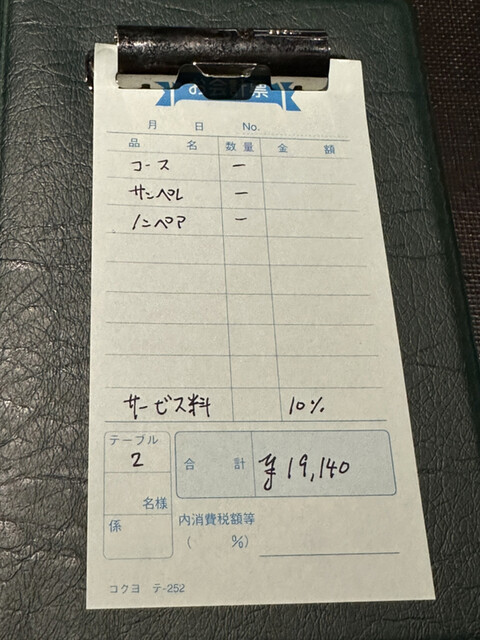 お会計票
月 日 No.
品 名 数量 金 額
コース 一
サンペレ 一
ノンペア 一
サービス料 10%
テーブル
2
合 計 ¥19,140
名様
係
内消費税額等
( %)
コクヨ テ-252